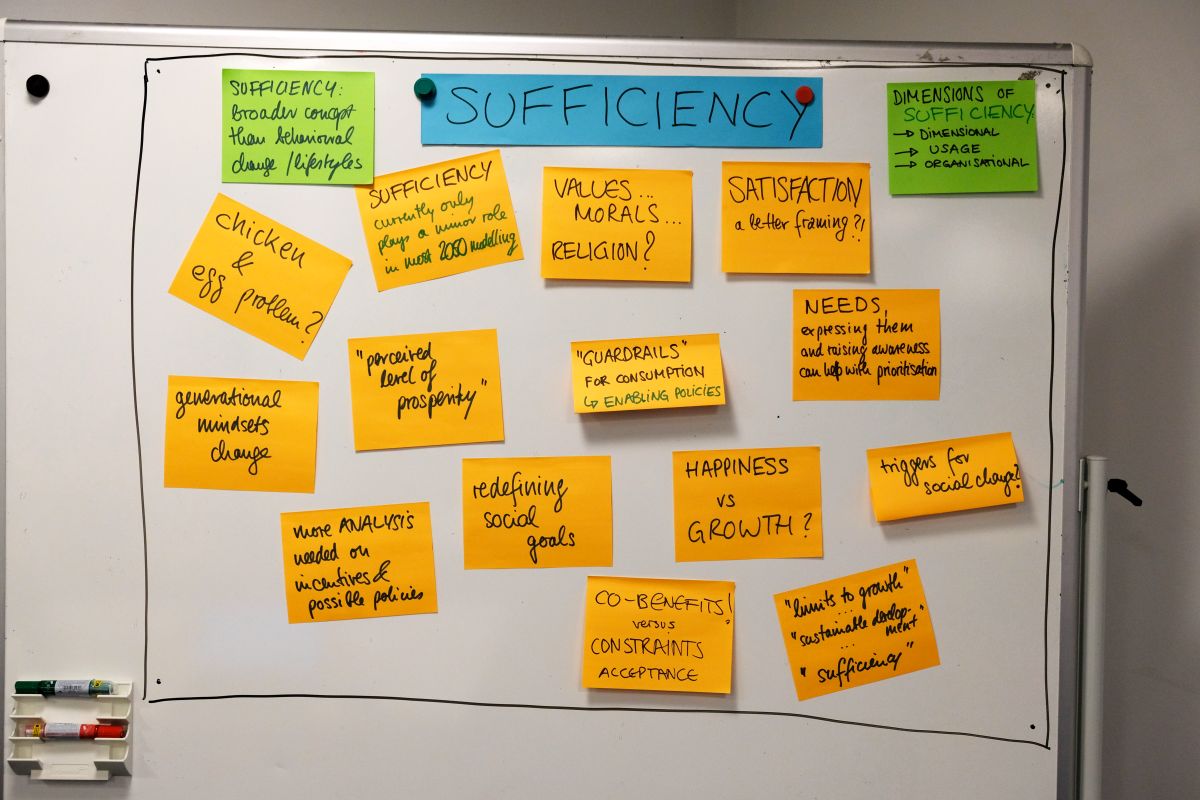 SUFFICIENCY:
broader concept
than behavioural
change / lifestyles
SUFFICIENCY
DIMENSIONS OF
SUFFICIENCY:
→ DIMENSIONAL
→ USAGE
→ ORGANISATIONAL
SUFFICIENCY
currently only
plays a minor role
in most 2050 modelling
VALUES...
MORALS...
RELIGION?
SATISFACTION
a better framing?!
chicken
&
egg problem?
NEEDS,
expressing them
and raising awareness
can help with prioritisation
"perceived
level of
prosperity"
"GUARDRAILS"
FOR CONSUMPTION
↳ ENABLING POLICIES
generational
mindsets
change
redefining
social
goals
HAPPINESS
VS
GROWTH?
triggers for
social change?
more ANALYSIS
needed on
incentives &
possible policies
CO-BENEFITS!
versus
CONSTRAINTS
ACCEPTANCE
"limits to growth"
...
"sustainable develop-
ment"
...
"sufficiency"